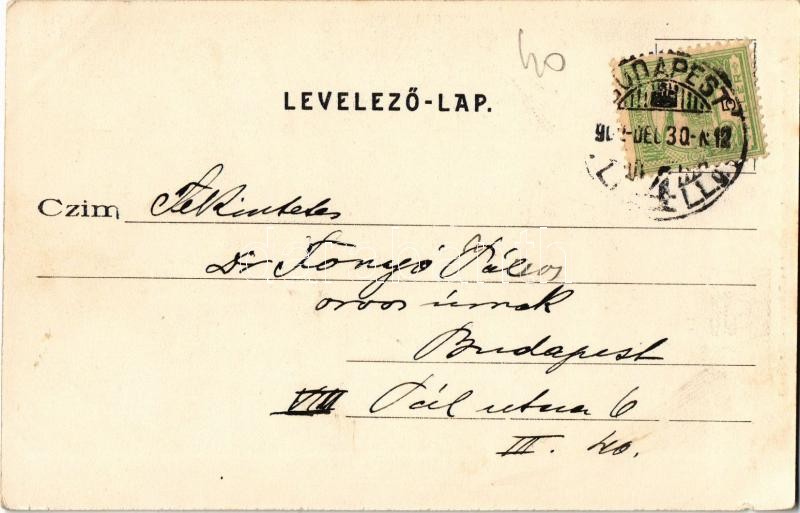 40
LEVELEZŐ-LAP.
BUDAPEST
DEC 30
Czim Tekintetes
Dr Fonyó Pál
orvos úrnak
Budapest
VIII Pál utca 6
III. 40.